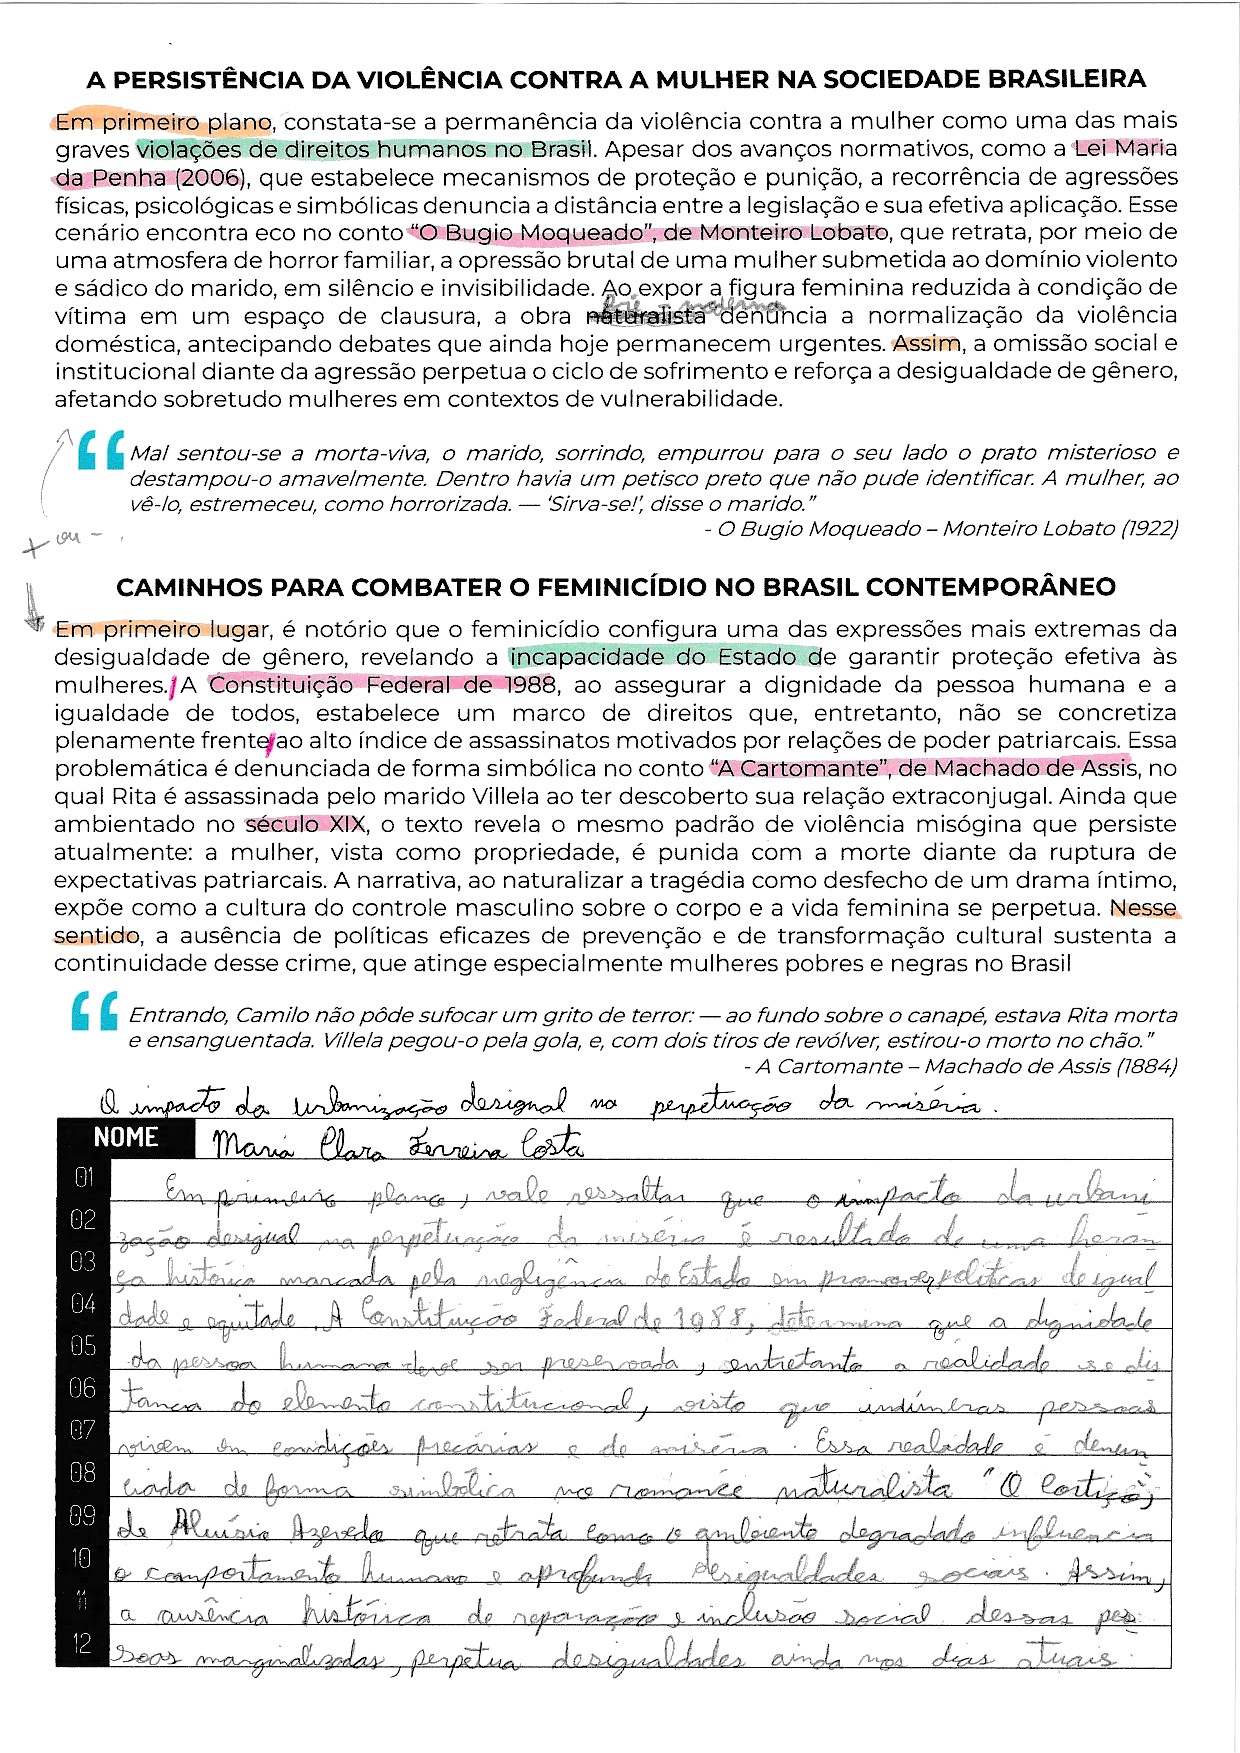 A PERSISTÊNCIA DA VIOLÊNCIA CONTRA A MULHER NA SOCIEDADE BRASILEIRA
Em primeiro plano, constata-se a permanência da violência contra a mulher como uma das mais
graves violações de direitos humanos no Brasil. Apesar dos avanços normativos, como a Lei Maria
da Penha (2006), que estabelece mecanismos de proteção e punição, a recorrência de agressões
físicas, psicológicas e simbólicas denuncia a distância entre a legislação e sua efetiva aplicação. Esse
cenário encontra eco no conto “O Bugio Moqueado”, de Monteiro Lobato, que retrata, por meio de
uma atmosfera de horror familiar, a opressão brutal de uma mulher submetida ao domínio violento
e sádico do marido, em silêncio e invisibilidade. Ao expor a figura feminina reduzida à condição de
pré-moderna
vítima em um espaço de clausura, a obra naturalista denuncia a normalização da violência
doméstica, antecipando debates que ainda hoje permanecem urgentes. Assim, a omissão social e
institucional diante da agressão perpetua o ciclo de sofrimento e reforça a desigualdade de gênero,
afetando sobretudo mulheres em contextos de vulnerabilidade.
“ Mal sentou-se a morta-viva, o marido, sorrindo, empurrou para o seu lado o prato misterioso e
destampou-o amavelmente. Dentro havia um petisco preto que não pude identificar. A mulher, ao
vê-lo, estremeceu, como horrorizada. — ‘Sirva-se!’, disse o marido.”
- O Bugio Moqueado – Monteiro Lobato (1922)
+ ou -
CAMINHOS PARA COMBATER O FEMINICÍDIO NO BRASIL CONTEMPORÂNEO
Em primeiro lugar, é notório que o feminicídio configura uma das expressões mais extremas da
desigualdade de gênero, revelando a incapacidade do Estado de garantir proteção efetiva às
mulheres. A Constituição Federal de 1988, ao assegurar a dignidade da pessoa humana e a
igualdade de todos, estabelece um marco de direitos que, entretanto, não se concretiza
plenamente frente ao alto índice de assassinatos motivados por relações de poder patriarcais. Essa
problemática é denunciada de forma simbólica no conto “A Cartomante”, de Machado de Assis, no
qual Rita é assassinada pelo marido Villela ao ter descoberto sua relação extraconjugal. Ainda que
ambientado no século XIX, o texto revela o mesmo padrão de violência misógina que persiste
atualmente: a mulher, vista como propriedade, é punida com a morte diante da ruptura de
expectativas patriarcais. A narrativa, ao naturalizar a tragédia como desfecho de um drama íntimo,
expõe como a cultura do controle masculino sobre o corpo e a vida feminina se perpetua. Nesse
sentido, a ausência de políticas eficazes de prevenção e de transformação cultural sustenta a
continuidade desse crime, que atinge especialmente mulheres pobres e negras no Brasil
“ Entrando, Camilo não pôde sufocar um grito de terror: — ao fundo sobre o canapé, estava Rita morta
e ensanguentada. Villela pegou-o pela gola, e, com dois tiros de revólver, estirou-o morto no chão.”
- A Cartomante – Machado de Assis (1884)
O impacto da urbanização desigual na perpetuação da miséria.
NOME Maria Clara Ferreira Costa
01 Em primeiro plano, vale ressaltar que o impacto da urbani
02 zação desigual na perpetuação da miséria é resultado de uma heran
03 ça histórica marcada pela negligência do Estado em promover politicas de igual
04 dade e equitade. A Constituição Federal de 1988, determina que a dignidade
05 da pessoa humana deve ser preservada, entretanto a realidade se dis
06 tancia do elemento constitucional, visto que inúmeras pessoas
07 vivem em condições precárias e de miséria. Essa realidade é denun
08 ciada de forma simbólica no romance naturalista "O Cortiço",
09 de Aluísio Azevedo que retrata como o ambiente degradado influencia
10 o comportamento humano e aprofunda desigualdades sociais. Assim,
11 a ausência histórica de reparação e inclusão social dessas pes
12 soas marginalizadas, perpetua desigualdades ainda nos dias atuais.